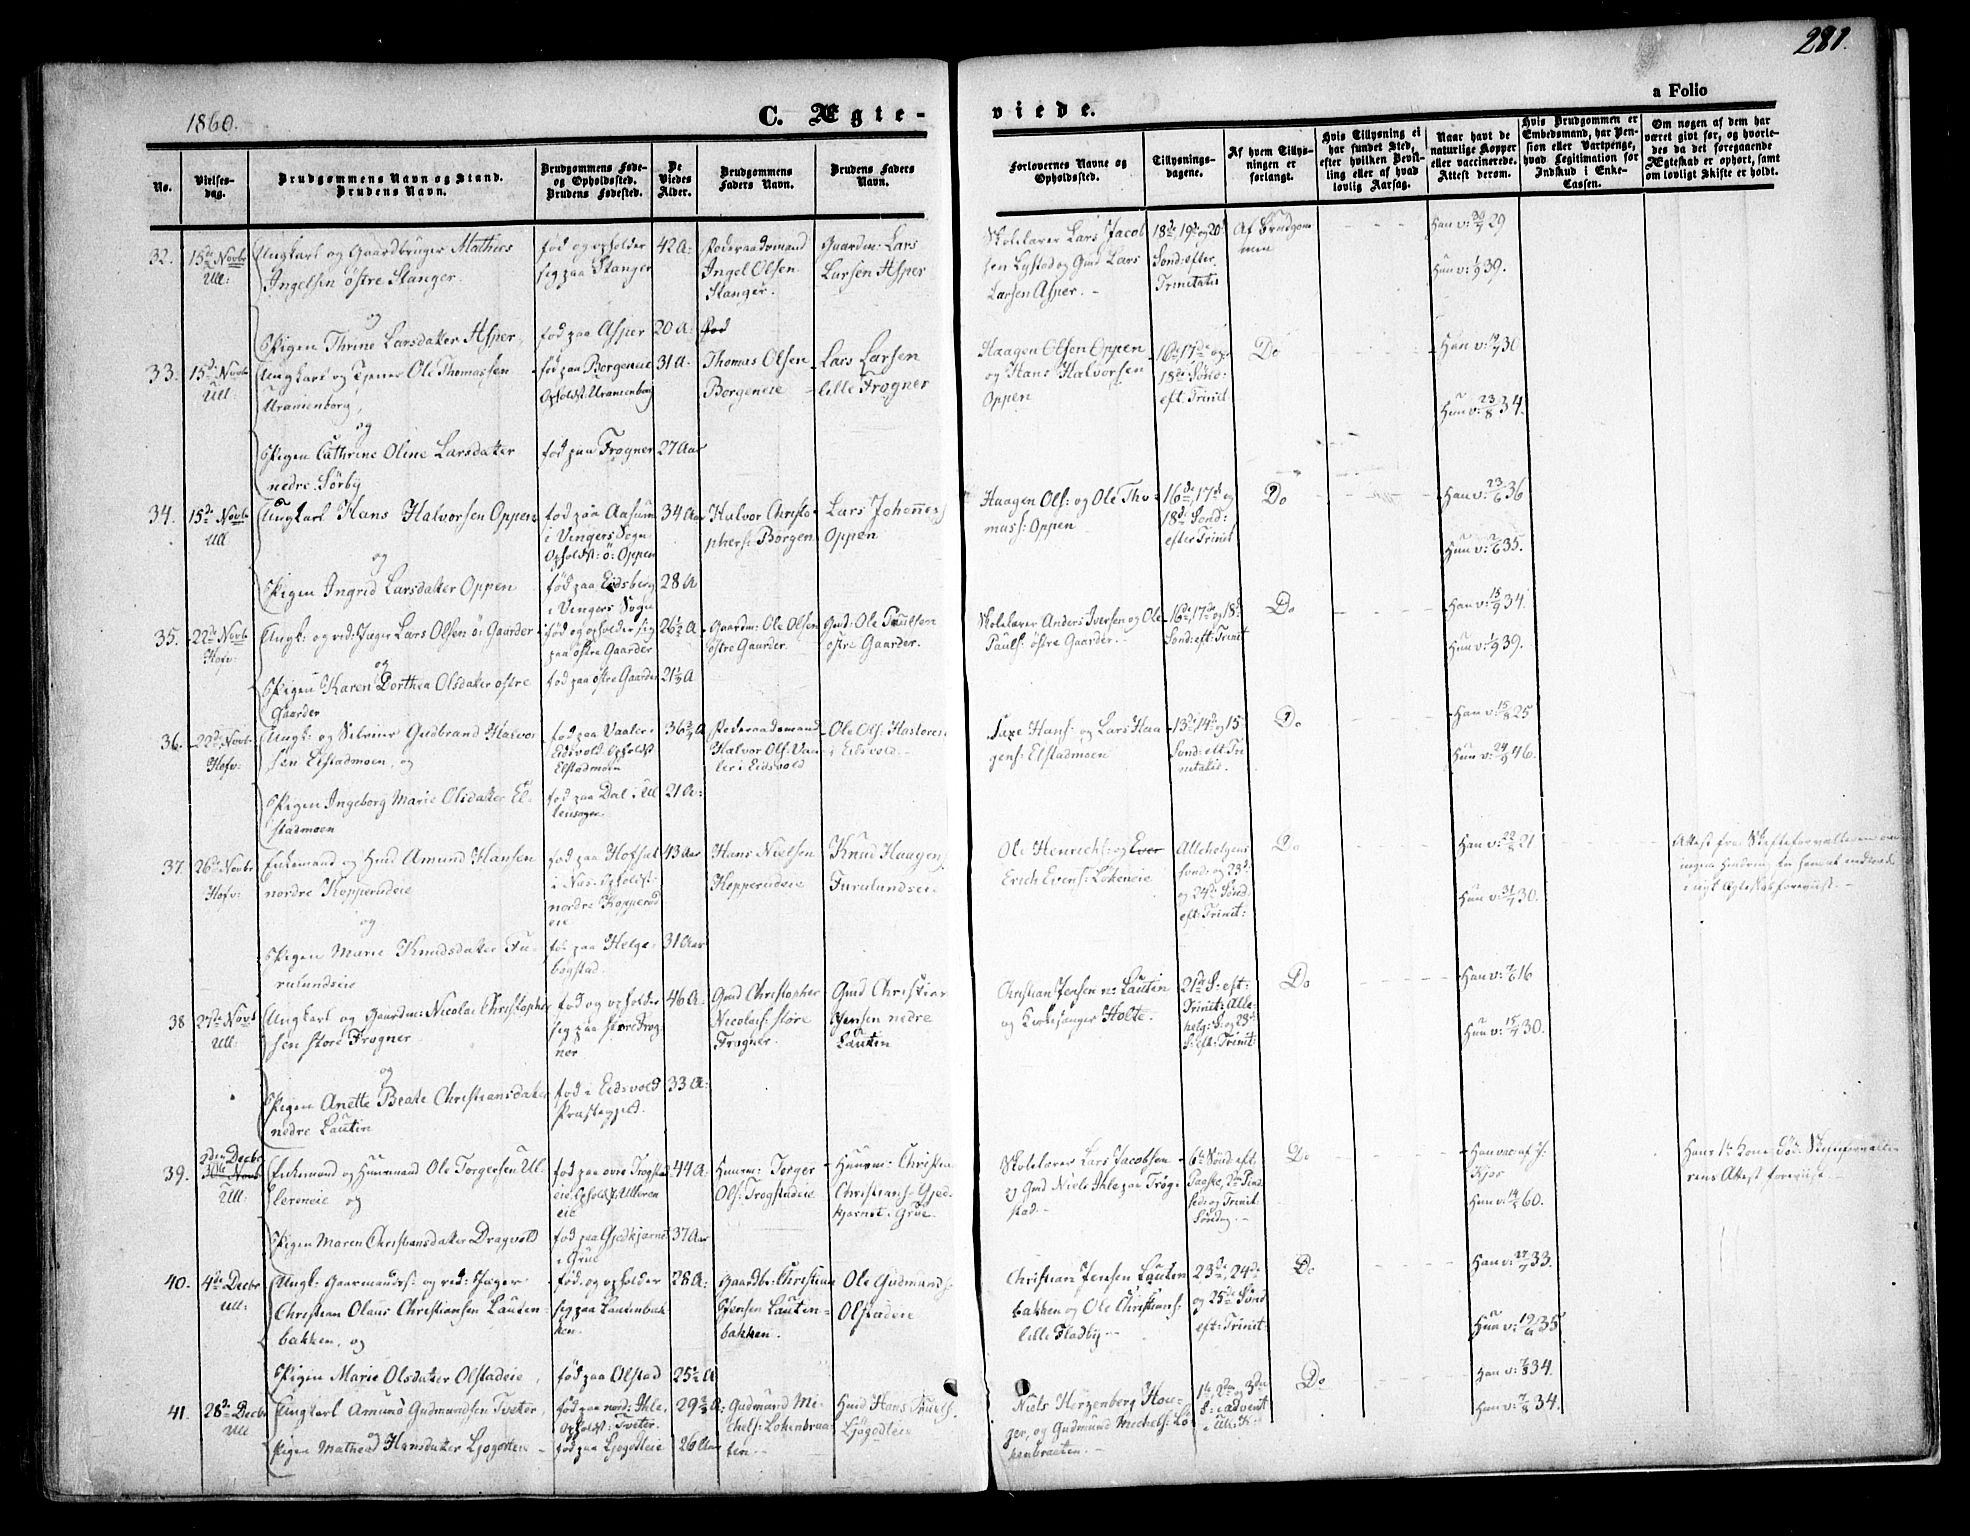 281.
a Folio
1860.
C. Ægte-
viede.
No.
Vielses-
dag.
Brudgommens Navn og Stand.
Brudens Navn.
Brudgommens Føde-
og Opholdssted.
Brudens Fødested.
De
Viedes
Alder.
Brudgommens
Faders Navn.
Brudens Faders
Navn.
Forlovernes Navne og
Opholdssted.
Tillysnings-
dagene.
Af hvem Tillys-
ningen er
forlangt.
Hvis Tillysning ei
har fundet Sted,
efter hvilken Bevil-
ling eller af hvad
lovlig Aarsag.
Naar havt de
naturlige Kopper
eller vaccinerede.
Attest derom.
Hvis Brudgommen er
Embedsmand, har Pen-
sion eller Vartpenge,
hvad Legitimation for
Indskud i Enke-
Cassen.
Om nogen af dem har
været givt før, og hvorle-
des da det foregaaende
Ægteskab er ophørt, samt
om lovligt Skifte er holdt.
32.
15de Novbr
Ull:
Ungkarl og Gaardbruger Mathies
Ingelsen østre Stanger.
og
Pigen Thrine Larsdatter Asper,
fød og opholder
sig paa Stanger
fød paa Asper
42 A:
20 A:
Føderaadsmand
Ingel Olsen
Stanger.
Gaardm: Lars
Larsen Asper
Skolelærer Lars Jacob
sen Lystad og Gmd Lars
Larsen Asper. -
18de 19de og 20de
Sønd: efter
Trinitatis
Af Brudgom
men
Han v: 29
Hun v: 1/9 39.
33.
15de Novbr
Ull:
Ungkarl og Tjener Ole Thomassen
Uranienborg,
og
Pigen Cathrine Oline Larsdatter
nedre Sørby
fød paa Borgeneie
Opholdst: Uranienborg
fød paa Frogner
31 A:
27 Aar
Thomas Olsen
Borgeneie
Lars Larsen
lille Frogner
Haagen Olsen Oppen
og Hans Halvorsen
Oppen
16de 17de og
18de Sønd:
eft: Trinit
Do
Han v: 30
Hun v: 23/8 34.
34.
15de Novbr
Ull
Ungkarl Hans Halvorsen Oppen
og
Pigen Ingrid Larsdatter Oppen
fød paa Aasum
i Vingers Sogn
Opholdst: ø: Oppen
fød paa Eidsberg
i Vingers Sogn
34 Aar
28 A
Halvor Christo-
phers: Borgen
Lars Johannes:
Oppen
Haagen Ols: og Ole Tho-
mass: Oppen
16de, 17de og
18de Sønd:
efter Trinit
Do
Han v: 23/6 36
Hun v: 35.
35.
22de Novb
Hofv:
Ungk: og red: Jæger Lars Olsen ø: Gaarder
og
Pigen Karen Dorthea Olsdatter østre
Gaarder
fød og opholder sig
paa østre Gaarder
fød paa østre Gaarder
26½ A
21½ A
Gaardm: Ole Olsen
østre Gaarder.
Gmd: Ole Paulsen
østre Gaarder.
Skolelærer Anders Iversen og Ole
Pauls: østre Gaarder.
16de, 17de og 18de
Sønd: eft: Trinit
Do
Han v: 15/9 34.
Hun v: 1/9 39.
36.
22de Novb
Hofv:
Ungk: og Gudbrand Halvor
sen Elstadmoen, og
Pigen Ingeborg Marie Olsdatter El-
stadmoen
fød paa Vaaler i
Eidsvold. Opholdst
Elstadmoen
fød paa Dal i Ul
lensager.
36¾ A
21 A:
Føderaadsmand
Halvor Ols: Vaa
ler i Eidsvold
Ole Ols:
i Eidsvold.
Hans: og Lars Haa
gens: Elstadmoen
13de 14de og 15
Sønd: eft Tri
nitatis.
Do
Han v: 15/8 25
Hun v: 24/9 46.
37.
26de Novbr
Hofv:
Enkemand og Hmd Amund Hansen
nordre Kopperudeie
og
Pigen Marie Knudsdatter Fu-
rulundseie
fød paa Hofsal
i Næs. Opholdst:
nordre Kopperud
eie
fød paa Helge-
bogstad.
43 Aar
31 Aar
Hans Nielsen
Kopperudeie
Knud Haagens:
Furulundseie
Ole Henrichs: og
Erich Evens: Løkeneie
Allehelgens
Sønd: og 23de
og 24de Sønd
eft: Trinit:
Do
Han v: 22/8 21
Hun v: 31/7 30.
Attest fra Skifteforvalteren om
ingen Hindring for ham at indtræde
i nyt Ægteskab forevist. -
38
27de Novb
Ull:
Ungkarl og Gaardm: Nicolai Christopher
sen store Frogner
og
Pigen Anette Beate Christiansdatter
nedre Lautin
fød og opholder
sig paa store Frog
ner
fød i Eidsvold
Præstegjeld.
46 A:
33 A:
Gmd Christopher
Nicolais: store
Frogner.
Gmd Christian
Jensen nedre
Lautin
Christian Jensen n: Lautin
og Kirkesanger Holte.
21de S: eft:
Trinit: Alle-
helg: S: og 23de
S: eft: Trinit:
Do
Han v: 16
Hun v: 15/7 30.
39.
3den Decbr
30te Novb
Ull:
Enkemand og Huusmand Ole Torgersen Ul-
lereneie og
Pigen Maren Christiansdatter Dragvold
fød paa øvre Trogstad
eie. Opholdst Ulleren
eie
fød paa Gjedkjærnet
i Grue
44 A:
37 Aar
Huusm: Torger
Ols: Trogstadeie
Huusm: Christian
Christians: Gjed-
kjærnet i Grue.
Skolelærer Lars Jacobsen
og Gmd Niels Ihle paa Trøg-
stad.
6te Sønd: eft
Paaske, 2den Pind
sed: og Trinit
Søndag. -
Do
Han vac: af
Kjos
Hun v: 14/2 60.
Hans 1ste Kone død. Skifteforvalte
rens Attest forevist. -
40.
4de Decbr
Ull:
Ungk: Gaarmands: og red: Jæger
Christian Olaus Christiansen Lautin-
bakken, og
Pigen Marie Olsdatter Olstadeie,
fød og opholder
sig paa Lautenbak
ken.
fød paa Olstad
28 A:
25½ A
Gaardbr: Christian
Jensen Lautin-
bakken.
Ole Gudmunds:
Olstadeie
Christian Jensen Lautin
bakken og Ole Christians:
lille Fladby. -
23de, 24de
og 25de Sønd
eft: Trinit:
Do
Han v: 33.
Hun v: 19/9 35
41.
28de Decbr
Ull
Ungkarl Amund Gudmundsen Tveter,
og
Pigen Mathea Hansdatter Ljøgoten
fød paa nord: Ihle,
Opholdst: Tveter.
fød paa Ljøgodteie
29½ A:
26 Aar
Gudmund Mi-
chels: Løkenbraa
ten. -
Hmd Hans Pauls:
Ljøgodteie
Niels Herzenberg Hou-
ger, og Gudmund Michels: Lø-
kenbraaten. -
1ste, 2den og 3den
S: i Advent
i Ull: K.
Do
Han v: 7/8 34.
Hun v: 7/8 34.